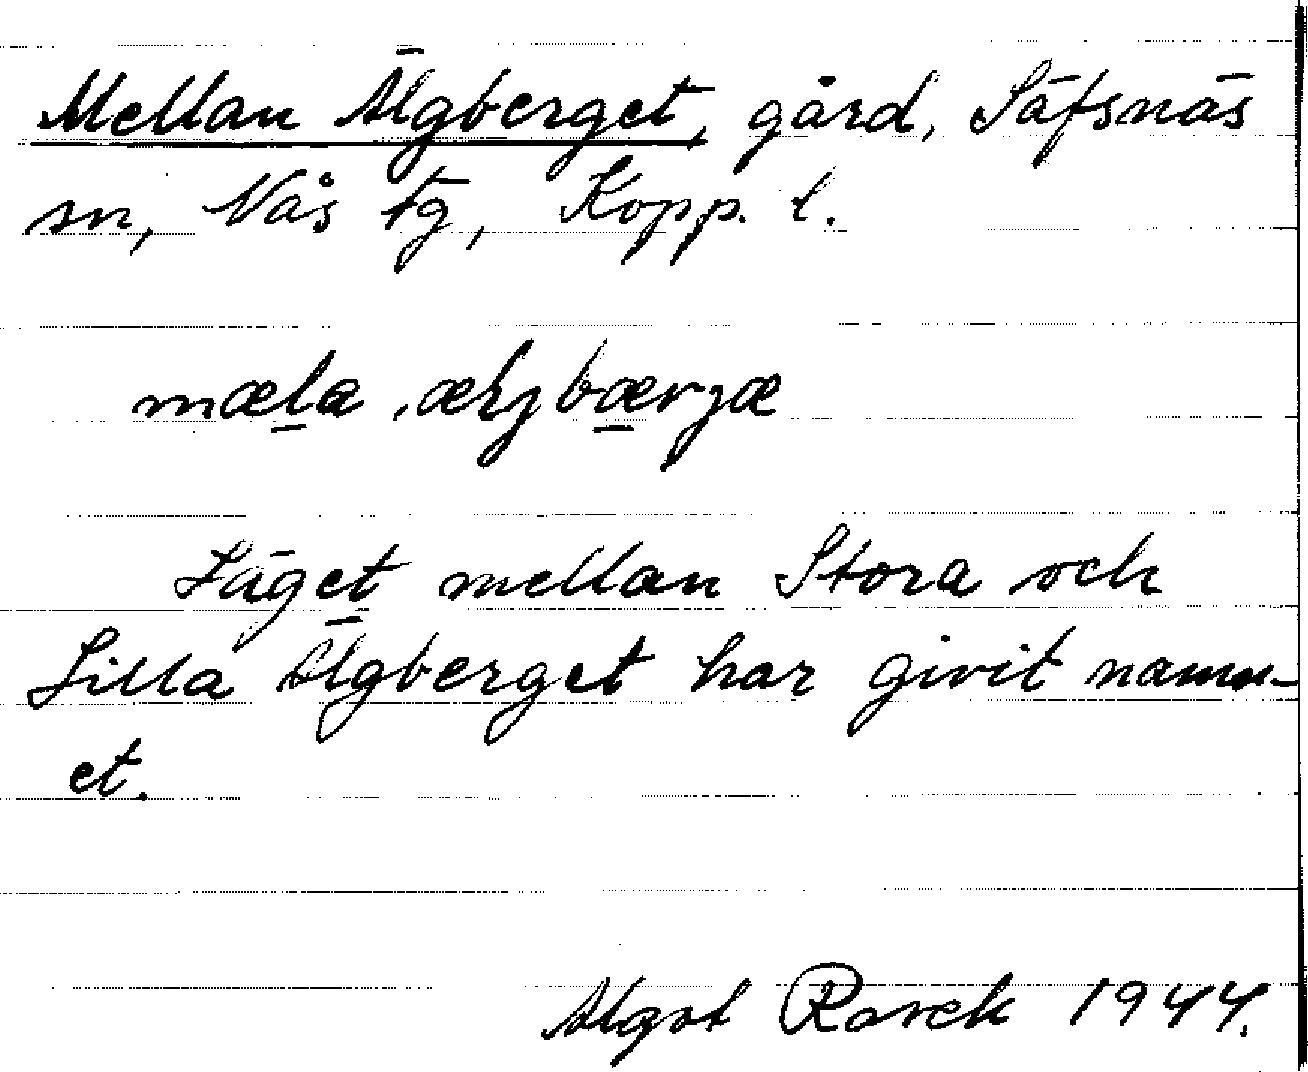 Mellan Älgberget, gård, Säfsnäs
sn, Nås tg, Kopp. l.
mæla ˌæljbærjæ
Läget mellan Stora och
Lilla Älgberget har givit namn-
et.
Algot 1944.